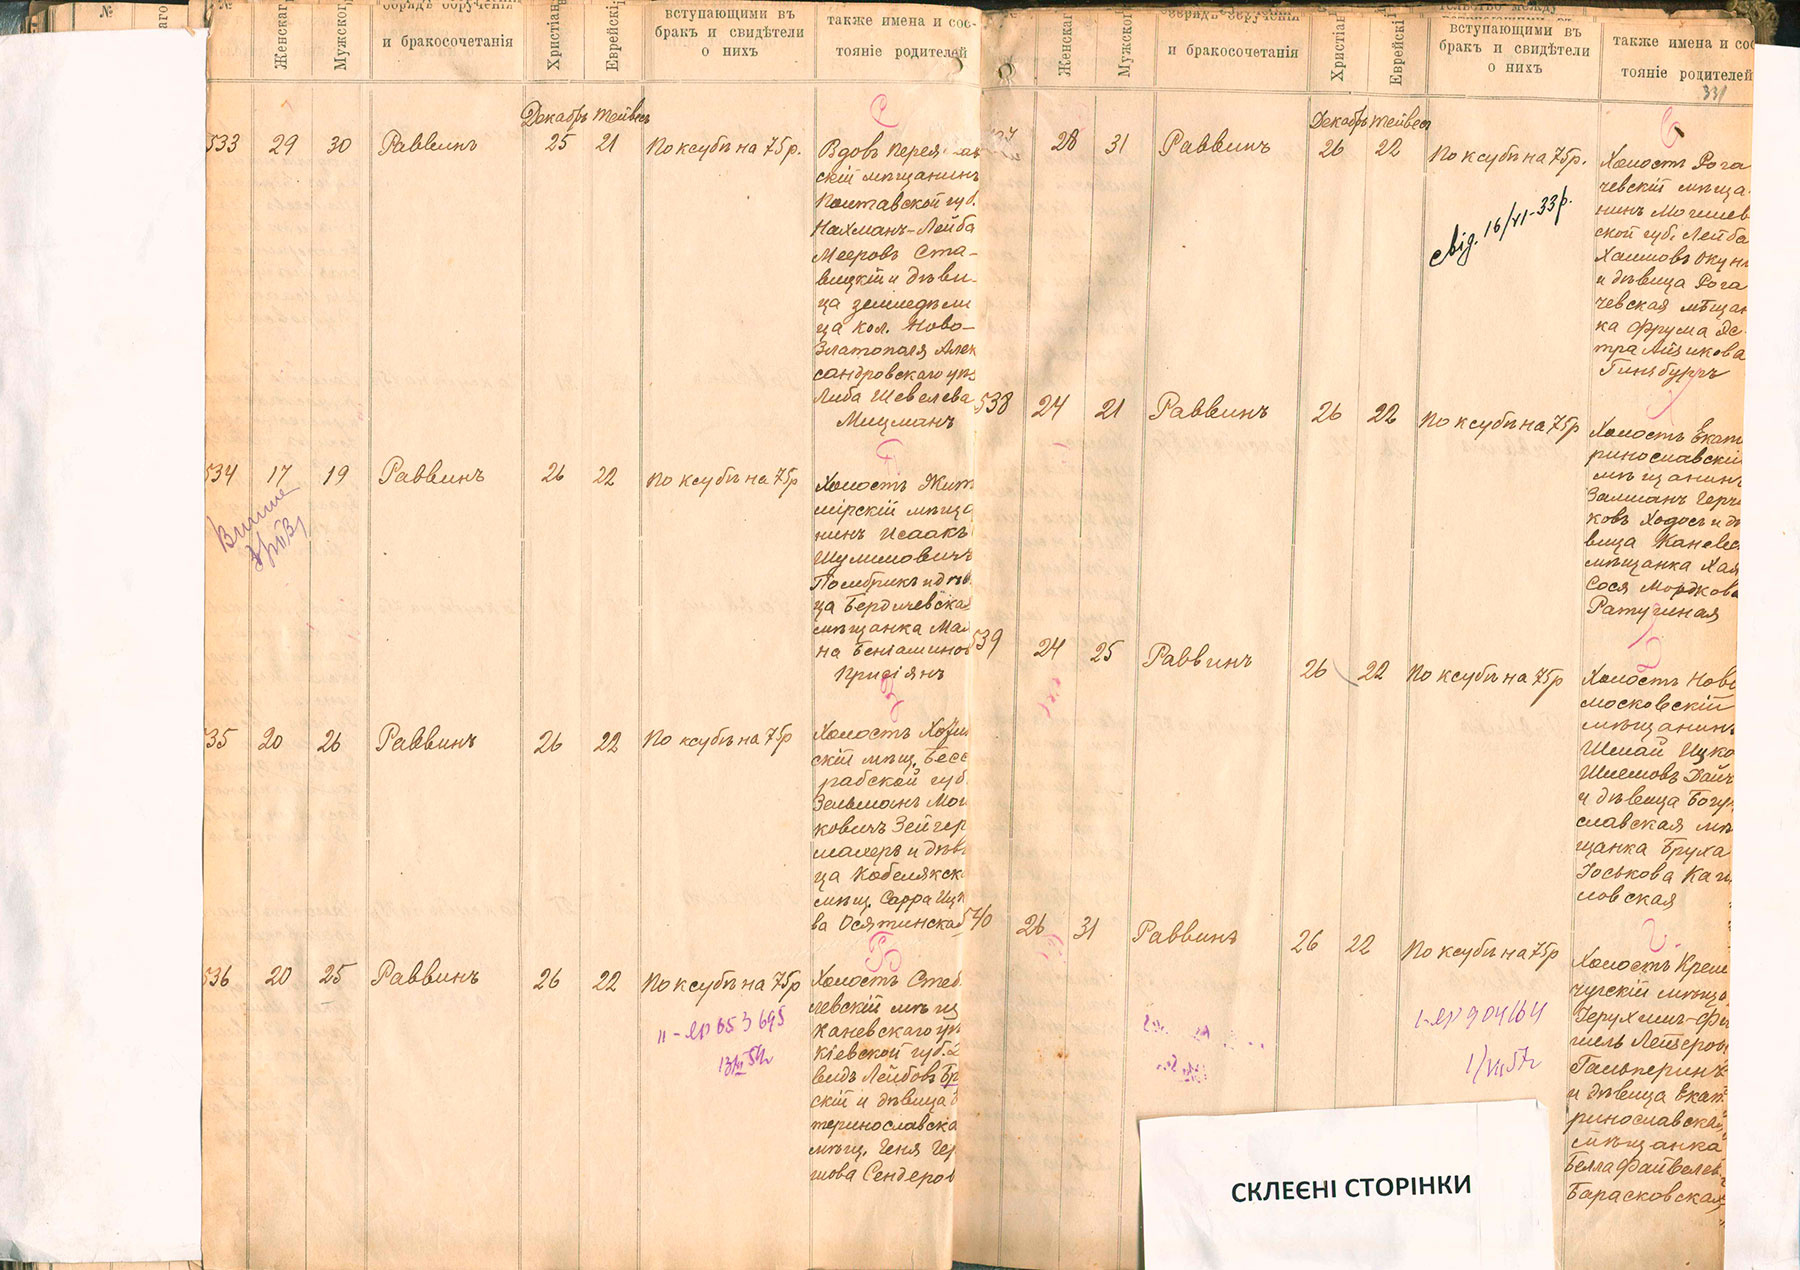 №
Женскаг
Мужског
обрядъ обрученія
и бракосочетанія
Христіан
Еврейскі
вступающими въ
бракъ и свидѣтели
о нихъ
также имена и сос-
тояніе родителей
Декабрь Тейвесъ
533 29 30 Раввинъ 25 21 По ксубѣ на 75р.
Вдовъ Перея
скій мѣщанинъ
Полтавской губ.
Нахманъ-Лейба
Мееровъ Ста-
вицкій и дѣви-
ца земледѣли
ца кол. Ново-
Златополя Алек
сандровскаго уѣз
Либа Шевелева
Мицманъ
534 17 19 Раввинъ 26 22 По ксубѣ на 75р
Холостъ Жит
мірскій мѣща
нинъ Исаакъ
Шулимовичъ
и дѣв
ца Бердичевская
мѣщанка Мал
на Беніаминов
535 20 26 Раввинъ 26 22 По ксубѣ на 75р
Холостъ
скій мѣщ. Бесс
рабской губ.
Зельманъ Мош
ковичъ Зейгер
махеръ и дѣви
ца Кобелякск
мѣщ. Сарра Ицк
ва Осятинская
536 20 25 Раввинъ 26 22 По ксубѣ на 75р
II-ЯР 653695
Холостъ Стеб
левскій мѣщ
Каневскаго уѣ
Кіевской губ.
видъ Лейбовъ
скій и дѣвица
теринославска
мѣщ. Геня Гер
шова Сендеров
Женскаг
Мужског
и бракосочетанія
Христіан
Еврейскі
вступающими въ
бракъ и свидѣтели
о нихъ
также имена и сос
тояніе родителей
331
Декабрь Тейвесъ
28 31 Раввинъ 26 22 По ксубѣ на 75р.
свід. 16/VI-33р.
Холостъ Рога
чевскій мѣща
нинъ Могилев
ской губ. Лейба
Хаимовъ Окунь
и дѣвица Рога
чевская мѣщан
ка Фрума Эс
тра Айзикова
Гинзбургъ
538 24 21 Раввинъ 26 22 По ксубѣ на 75р
Холостъ Екат
ринославскій
мѣщанинъ
Залманъ Герч
ковъ Ходосъ и дѣ
вица Каневс
мѣщанка Хая
Сося Мордкова
Ратушная
539 24 25 Раввинъ 26 22 По ксубѣ на 75р
Холостъ Ново
московскій
мѣщанинъ
Шмай Ицко
Шлемовъ Дайч
и дѣвица Богу
славская мѣ
щанка Бруха
Іоськова Каги
ловская
540 26 31 Раввинъ 26 22 По ксубѣ на 75р
I-ЯР 904164
Холостъ Кремен
чугскій мѣща
Герухимъ-Фи
шель Лейзеров
Гальперинъ
и дѣвица Екат
ринославская
мѣщанка
Белла Файвелев
Барасковская
СКЛЕЄНІ СТОРІНКИ